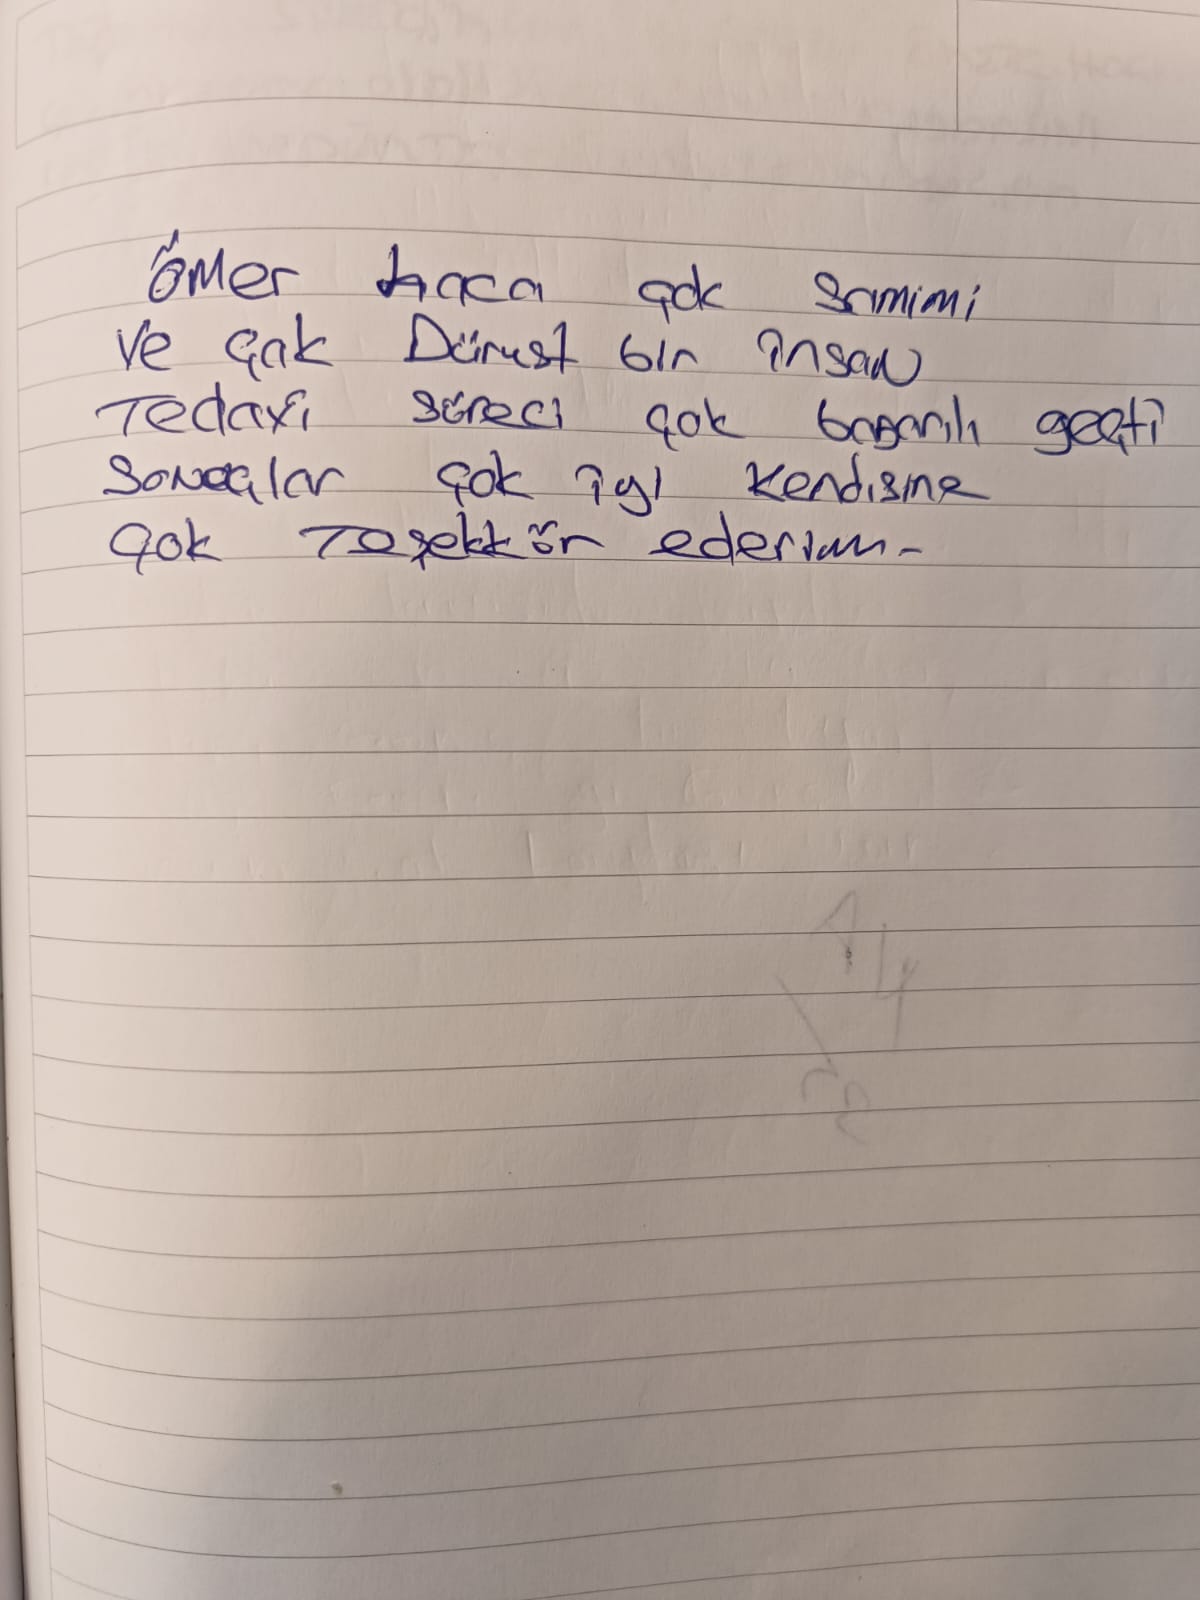 Ömer hoca çok samimi
ve çok Dürüst bir insan
Tedavi süreci çok başarılı geçti
sonuçlar çok iyi kendisine
çok Teşekkür ederim-